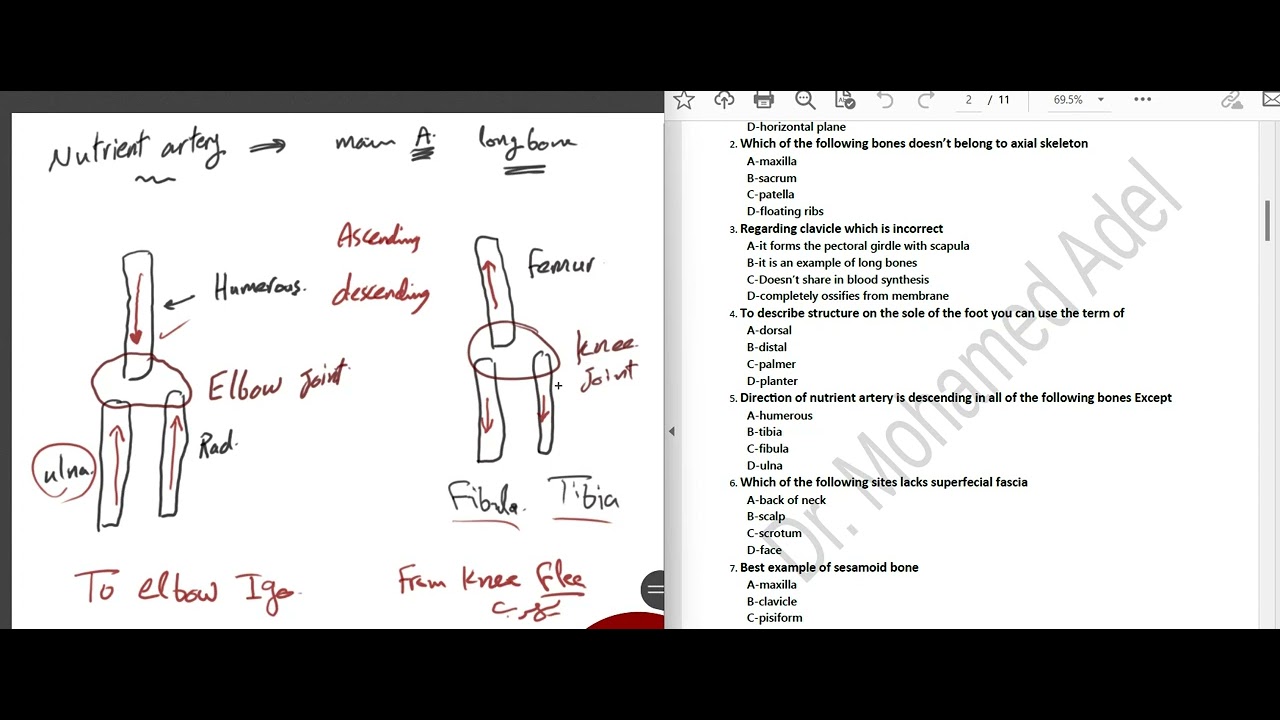 Nutrient artery ⇒ main A. long bone
Ascending
Femur
Humerous.
descending
Knee
Joint
Elbow Joint
Rad.
ulna.
Fibula. Tibia
To elbow I go.
From Knee flee
2 / 11 69.5%
D-horizontal plane
2. Which of the following bones doesn’t belong to axial skeleton
A-maxilla
B-sacrum
C-patella
D-floating ribs
3. Regarding clavicle which is incorrect
A-it forms the pectoral girdle with scapula
B-it is an example of long bones
C-Doesn’t share in blood synthesis
D-completely ossifies from membrane
4. To describe structure on the sole of the foot you can use the term of
A-dorsal
B-distal
C-palmer
D-planter
5. Direction of nutrient artery is descending in all of the following bones Except
A-humerous
B-tibia
C-fibula
D-ulna
6. Which of the following sites lacks superfecial fascia
A-back of neck
B-scalp
C-scrotum
D-face
7. Best example of sesamoid bone
A-maxilla
B-clavicle
C-pisiform
Dr. Mohamed Adel